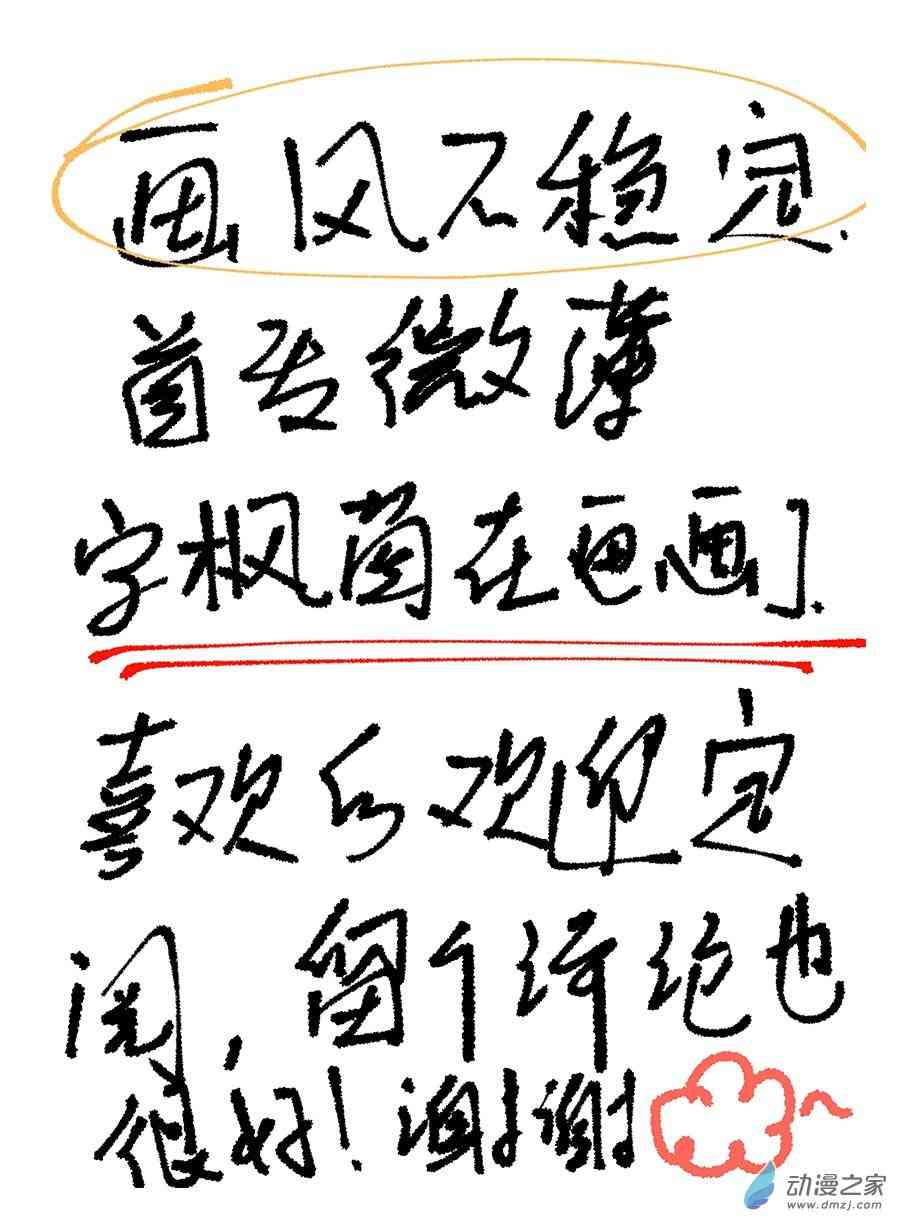 画风不稳定.
首告微薄
字枫菌在画画].
喜欢后欢迎定
阅,留个评论也
很好!谢谢
动漫之家
www.dmzj.com